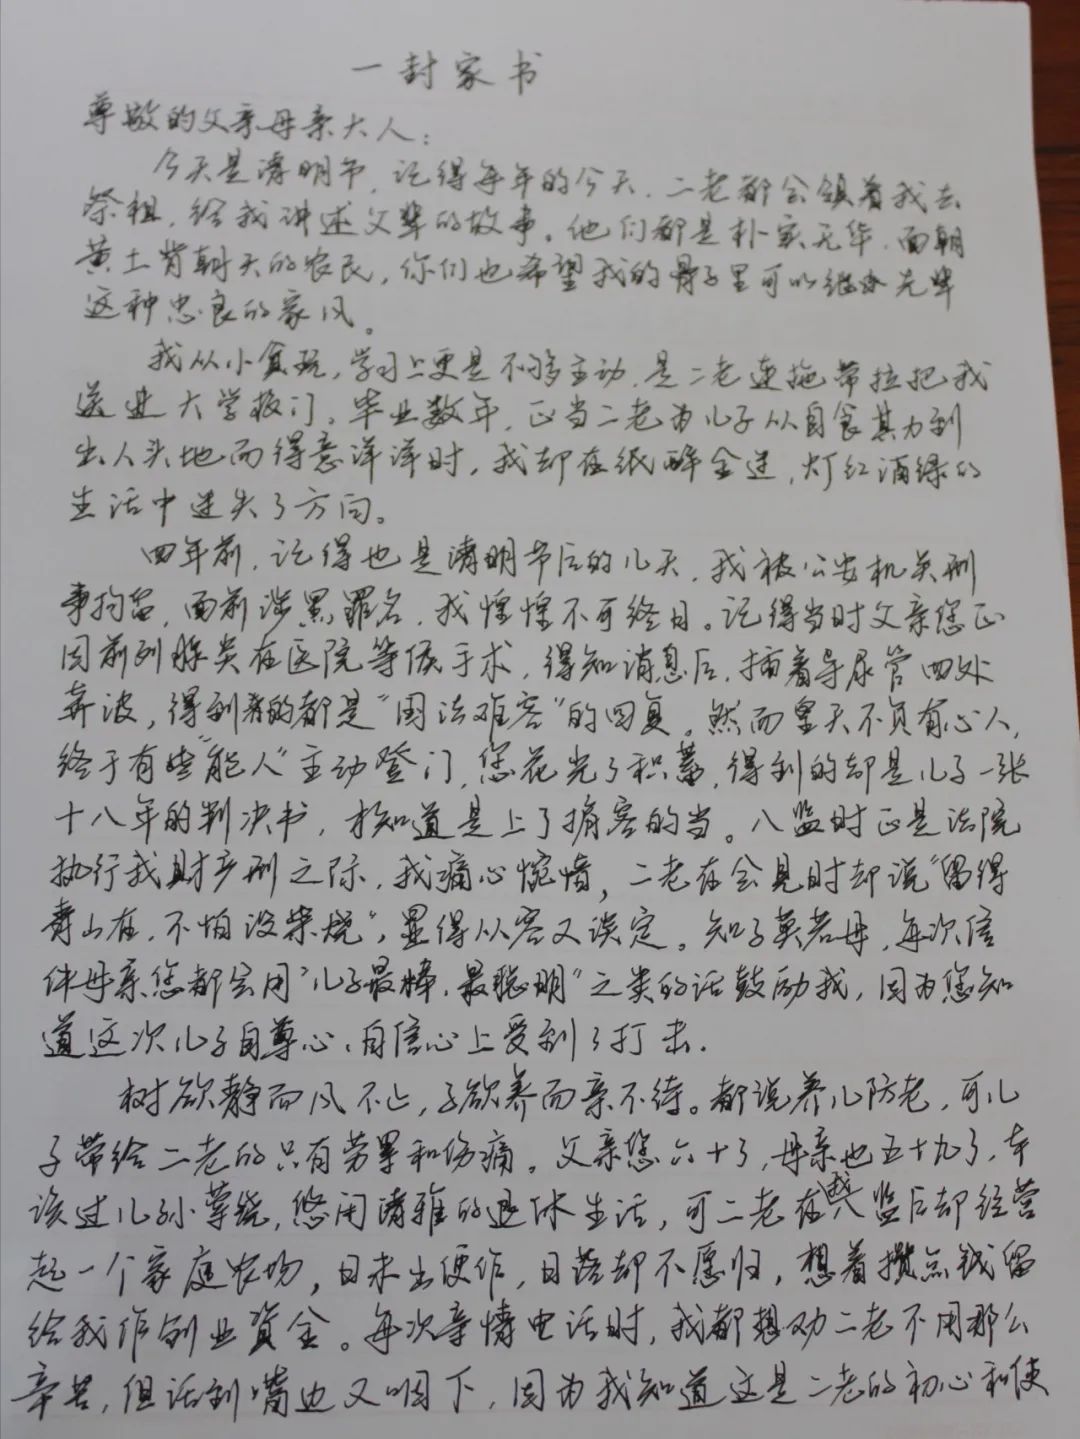 一封家书
尊敬的父亲母亲大人：
今天是清明节，记得每年的今天，二老都会领着我去
祭祖，给我讲述父辈的故事。他们都是朴实无华，面朝
黄土背朝天的农民，你们也希望我的骨子里可以继承先辈
这种忠良的家风。
我从小贪玩，学习上更是不够主动，是二老连拖带拉把我
送进大学校门。毕业数年，正当二老为儿子从自食其力到
出人头地而得意洋洋时，我却在纸醉金迷，灯红酒绿的
生活中迷失了方向。
四年前，记得也是清明节后的几天，我被公安机关刑
事拘留，面前涉黑罪名，我惶惶不可终日。记得当时父亲您正
因前列腺类在医院等候手术，得知消息后，插着导尿管四处
奔波，得到的都是“国法难容”的回复。然而皇天不负有心人，
终于有些“能人”主动登门，您花光了积蓄，得到的却是儿子一张
十八年的判决书，才知道是上了掮客的当。入监时正是法院
执行我财产刑之际，我痛心惋惜，二老在会见时却说“留得
青山在，不怕没柴烧”，显得从容又淡定。知子莫若母，每次信
件母亲您都会用“儿子最棒，最聪明”之类的话鼓励我，因为您知
道这次儿子自尊心、自信心上受到了打击.
树欲静而风不止，子欲养而亲不待。都说养儿防老，可儿
子带给二老的只有劳累和伤痛。父亲您六十了，母亲也五十九了，本
该过儿孙萦绕，悠闲清雅的退休生活，可二老在我入监后却经营
起一个家庭农场，日未出便作，日落却不愿归，想着攒点钱留
给我作创业资金。每次亲情电话时，我都想劝二老不用那么
辛苦，但话到嘴边又咽下，因为我知道这是二老的初心和使